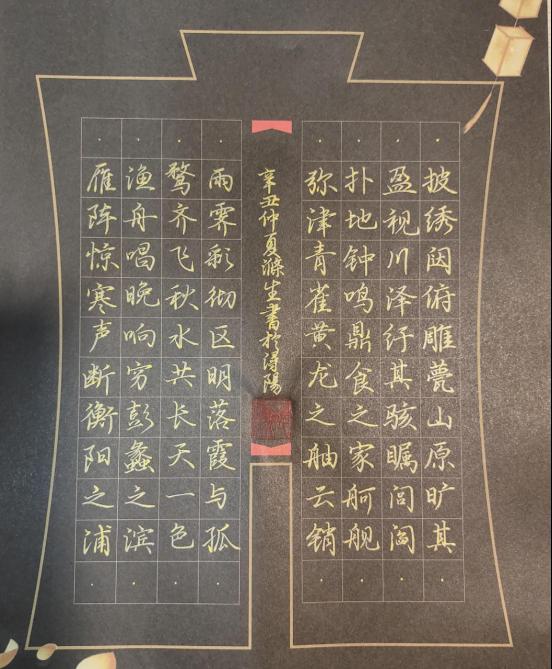 披绣闼俯雕甍山原旷其
盈视川泽纡其骇瞩闾阎
扑地钟鸣鼎食之家舸舰
弥津青雀黄龙之舳云销
雨霁彩彻区明落霞与孤
鹜齐飞秋水共长天一色
渔舟唱晚响穷彭蠡之滨
雁阵惊寒声断衡阳之浦
辛丑仲夏涤生書於浔陽